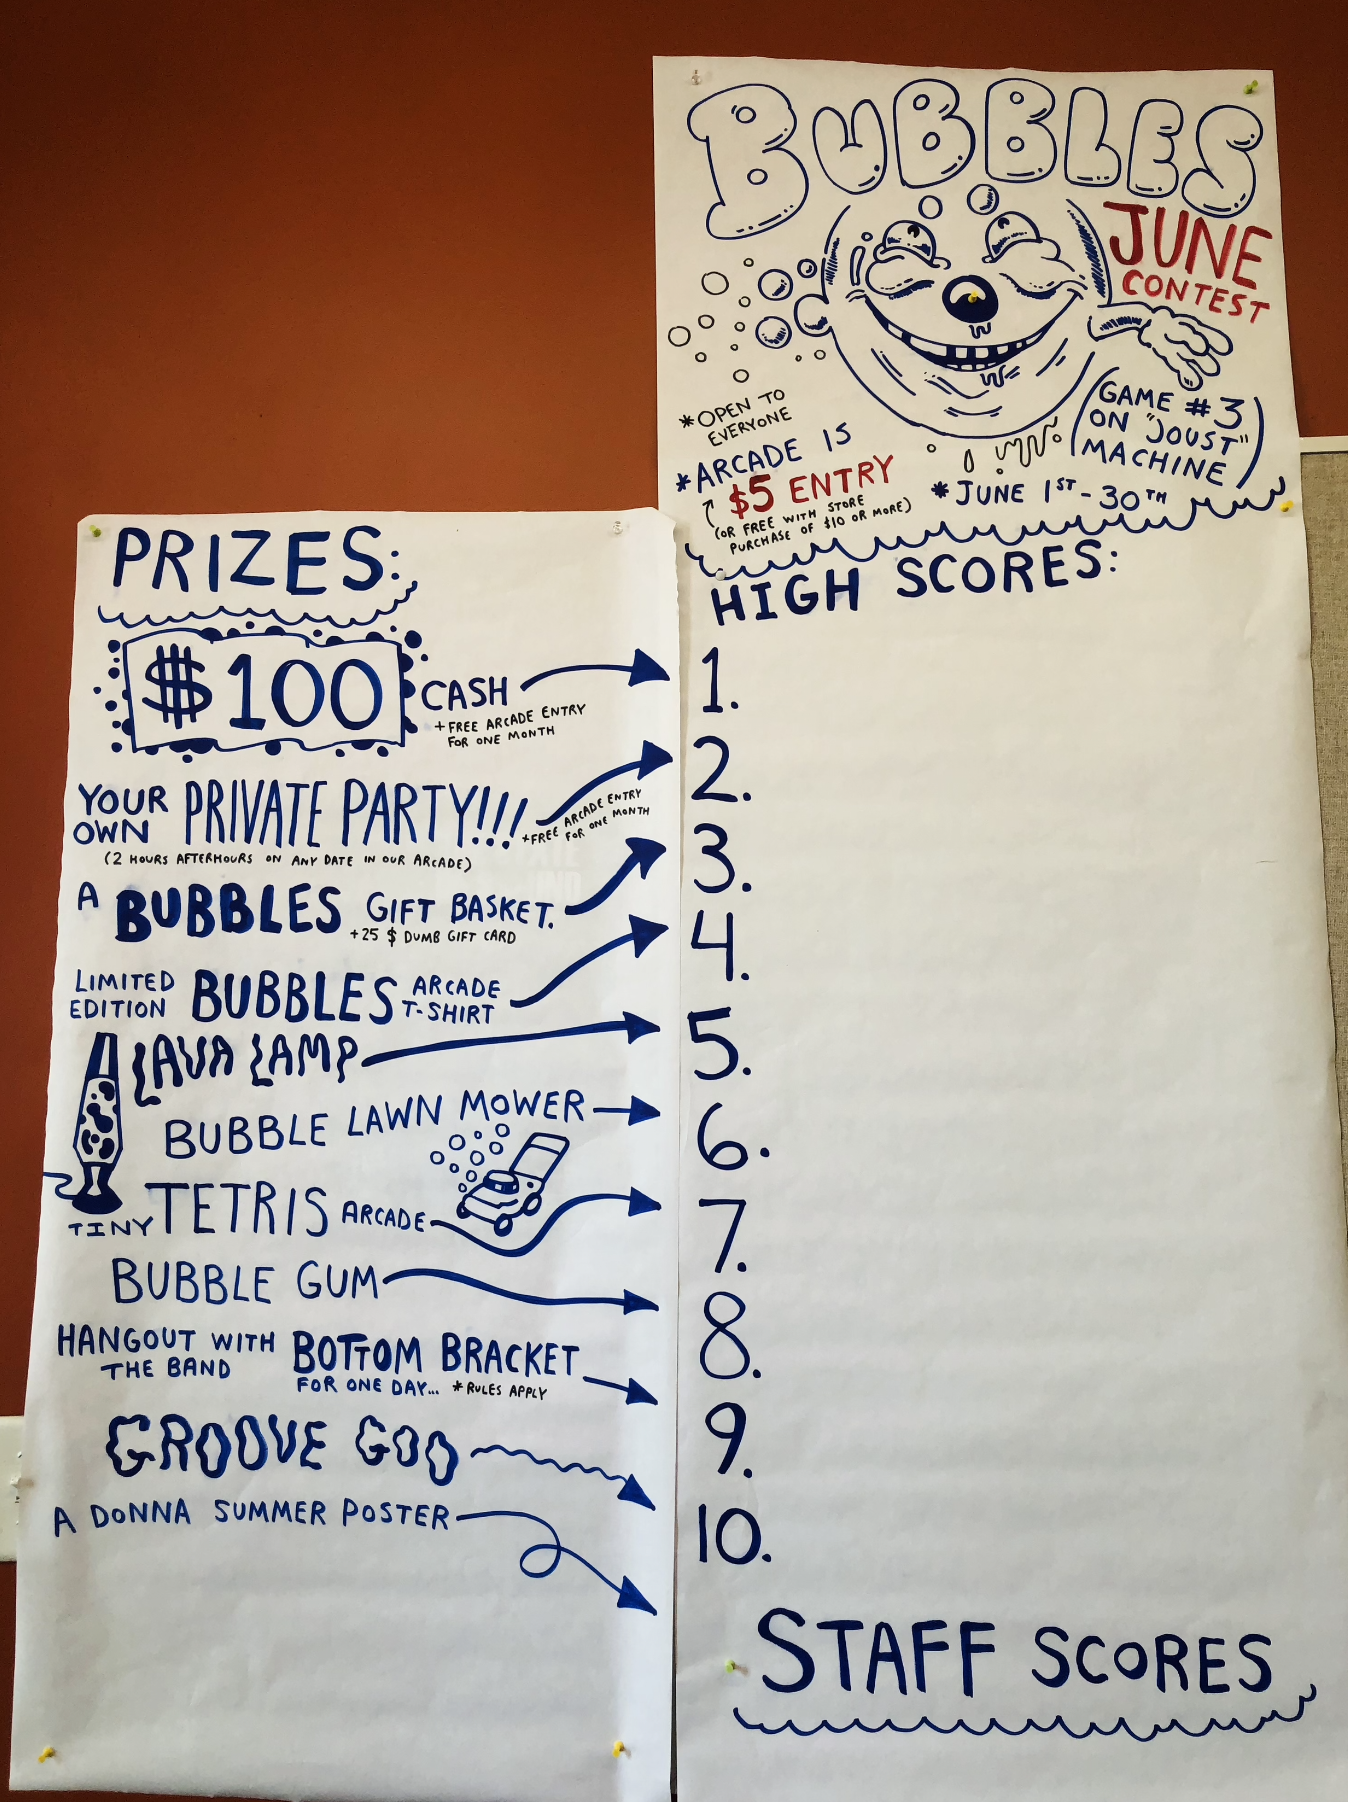 BUBBLES
JUNE
CONTEST
*OPEN TO
EVERYONE
*ARCADE IS
$5 ENTRY
(OR FREE WITH STORE
PURCHASE OF $10 OR MORE)
(GAME #3
ON "JOUST"
MACHINE)
*JUNE 1ST-30TH
PRIZES:
$100 CASH
+FREE ARCADE ENTRY
FOR ONE MONTH
YOUR OWN PRIVATE PARTY!!!
+FREE ARCADE ENTRY
FOR ONE MONTH
(2 HOURS AFTERHOURS ON ANY DATE IN OUR ARCADE)
A BUBBLES GIFT BASKET.
+25 $ DUMB GIFT CARD
LIMITED EDITION BUBBLES ARCADE T-SHIRT
LAVA LAMP
BUBBLE LAWN MOWER
TINY TETRIS ARCADE
BUBBLE GUM
HANGOUT WITH THE BAND BOTTOM BRACKET
FOR ONE DAY... *RULES APPLY
GROOVE GOO
A DONNA SUMMER POSTER
HIGH SCORES:
1.
2.
3.
4.
5.
6.
7.
8.
9.
10.
STAFF SCORES